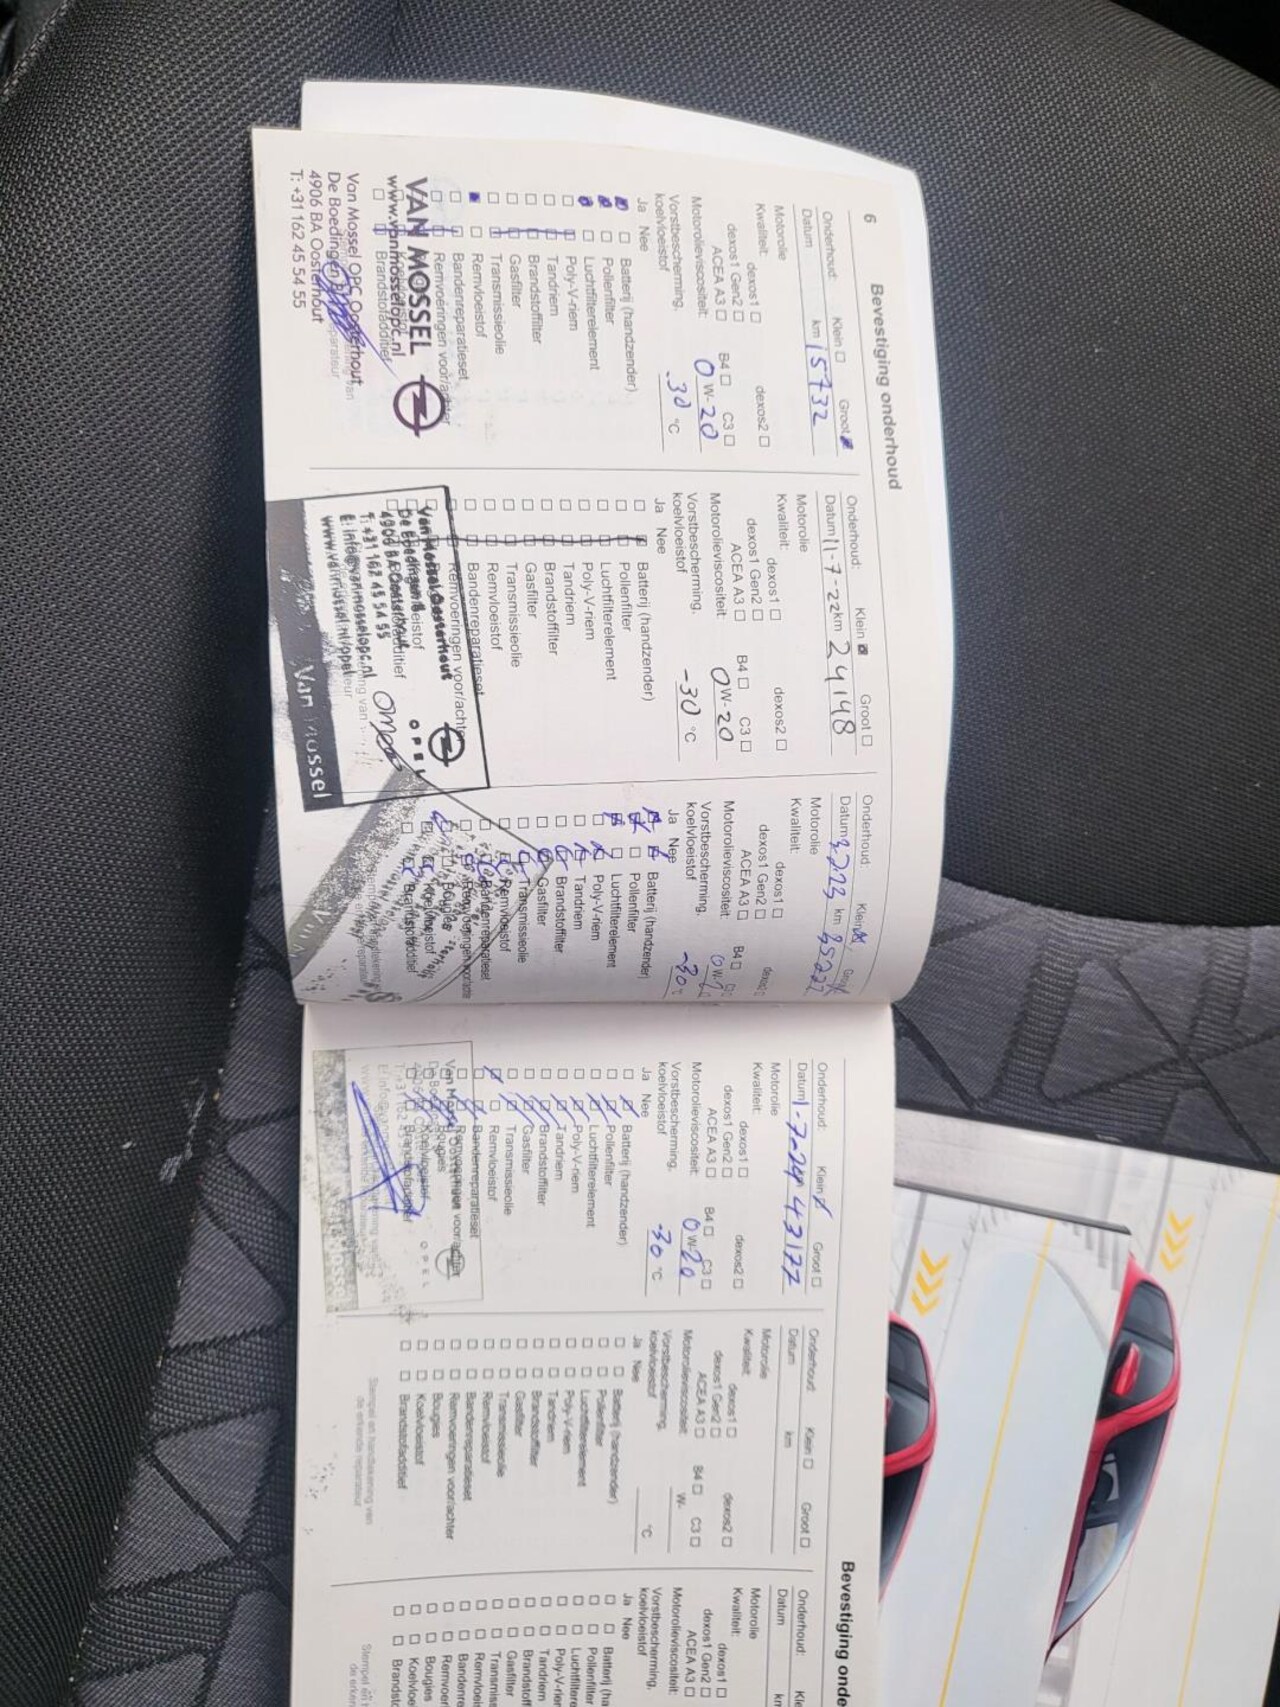 6
Bevestiging onderhoud
Onderhoud: Klein Groot
Datum km 15732
Motorolie
Kwaliteit: dexos1 dexos2
dexos1 Gen2
ACEA A3 B4 C3
Motorolieviscositeit: 0 W-20
Vorstbescherming, koelvloeistof -30 °C
Ja Nee
Batterij (handzender)
Pollenfilter
Luchtfilterelement
Poly-V-riem
Tandriem
Brandstoffilter
Gasfilter
Transmissieolie
Remvloeistof
Bandenreparatieset
Remvoeringen voor/achter
VAN MOSSEL
www.vanmosselopc.nl
Brandstofadditief
Van Mossel OPC Oosterhout
De Boedingen
4906 BA Oosterhout
T: +31 162 45 54 55
Onderhoud: Klein Groot
Datum 11-7-22 km 24148
Motorolie
Kwaliteit: dexos1 dexos2
dexos1 Gen2
ACEA A3 B4 C3
Motorolieviscositeit: 0 W-20
Vorstbescherming, koelvloeistof -30 °C
Ja Nee
Batterij (handzender)
Pollenfilter
Luchtfilterelement
Poly-V-riem
Tandriem
Brandstoffilter
Gasfilter
Transmissieolie
Remvloeistof
Bandenreparatieset
Remvoeringen voor/achter
Van Mossel Oosterhout
4906 BA Oosterhout
T: +31 162 45 54 55
OPEL
Van Mossel
Onderhoud: Klein Groot
Datum km
Motorolie
Kwaliteit: dexos1
dexos1 Gen2
ACEA A3 B4
Motorolieviscositeit: 0 W-
Vorstbescherming, koelvloeistof -30
Ja Nee
Batterij (handzender)
Pollenfilter
Luchtfilterelement
Poly-V-riem
Tandriem
Brandstoffilter
Gasfilter
Transmissieolie
Remvloeistof
Bandenreparatieset
Bougies
Koelvloeistof
Brandstofadditief
Onderhoud: Klein Groot
Datum 1-7-24 43177
Motorolie
Kwaliteit: dexos1 dexos2
dexos1 Gen2
ACEA A3 B4 C3
Motorolieviscositeit: 0 W-20
Vorstbescherming, koelvloeistof -30 °C
Ja Nee
Batterij (handzender)
Pollenfilter
Luchtfilterelement
Poly-V-riem
Tandriem
Brandstoffilter
Gasfilter
Transmissieolie
Remvloeistof
Bandenreparatieset
Remvoeringen voor/achter
Bougies
Koelvloeistof
Brandstofadditief
OPEL
Onderhoud: Klein Groot
Datum km
Motorolie
Kwaliteit: dexos1 dexos2
dexos1 Gen2
ACEA A3 B4 C3
Motorolieviscositeit: W-
Vorstbescherming, koelvloeistof °C
Ja Nee
Batterij (handzender)
Pollenfilter
Luchtfilterelement
Poly-V-riem
Tandriem
Brandstoffilter
Gasfilter
Transmissieolie
Remvloeistof
Bandenreparatieset
Remvoeringen voor/achter
Bougies
Koelvloeistof
Brandstofadditief
Stempel en handtekening van
de erkende reparateur
Bevestiging onde
Onderhoud: Kle
Datum km
Motorolie
Kwaliteit: dexos1
dexos1 Gen2
ACEA A3
Motorolieviscositeit:
Vorstbescherming, koelvloeistof
Ja Nee
Batterij (ha
Pollenfilter
Luchtfiltere
Poly-V-rie
Tandriem
Brandstoff
Gasfilter
Transmiss
Remvloeis
Bandenre
Remvoer
Bougies
Koelvloe
Brandst
Stempel en
de erken